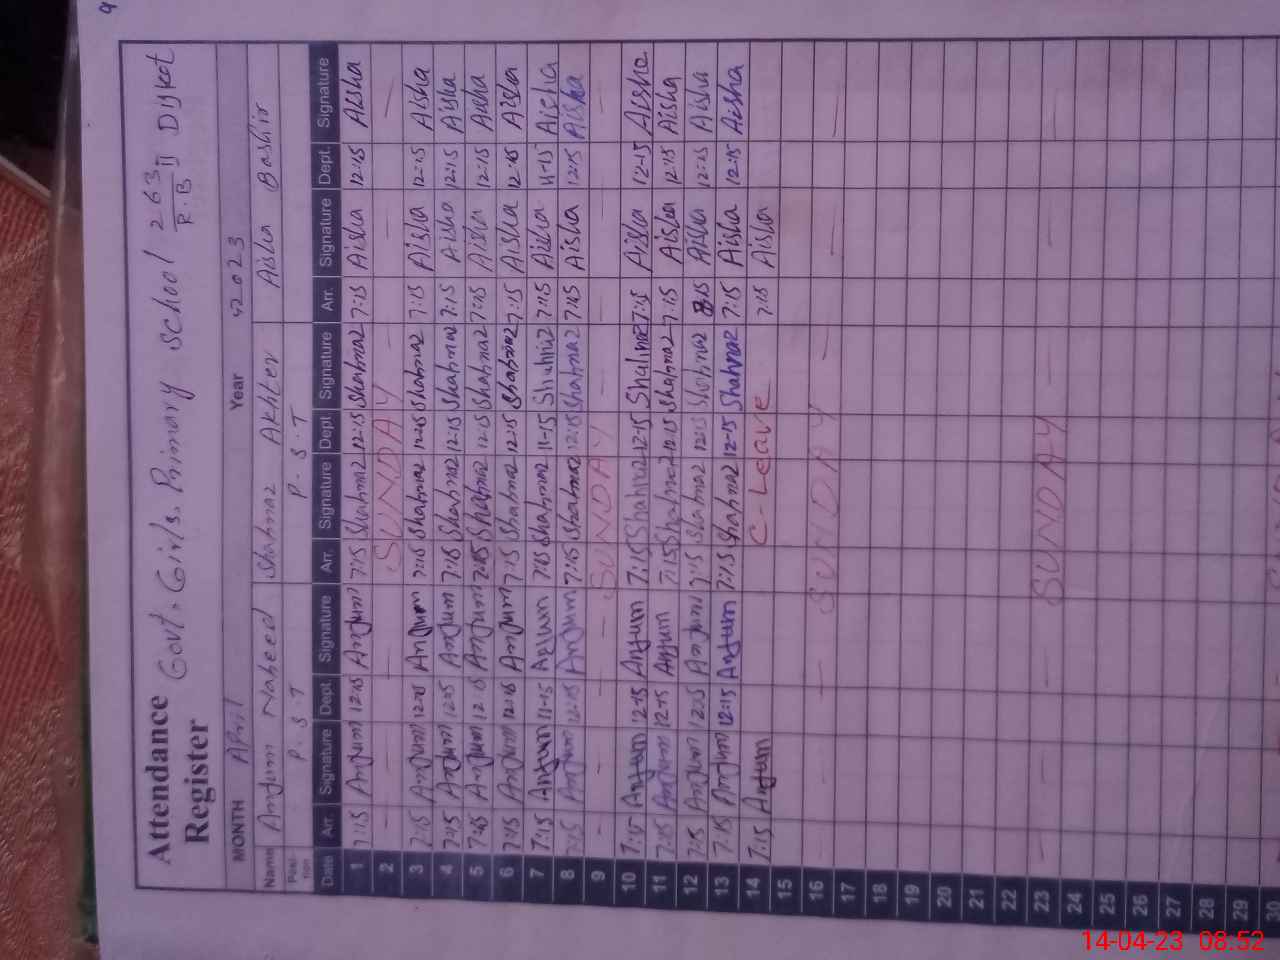 9
Attendance Register Govt. Girls. Primary School 263 R.B II Dijkot
MONTH April Year 2023
Name Anjum Naheed Shahnaz Akhter Aisha Bashir
Posi-tion P.S.T P.S.T
Date Arr. Signature Dept. Signature Arr. Signature Dept. Signature Arr. Signature Dept. Signature
1 7:15 Anjum 12:15 Anjum 7:15 Shahnaz 12:15 Shahnaz 7:15 Aisha 12:15 Aisha
2 SUNDAY
3 7:15 Anjum 12:15 Anjum 7:15 Shahnaz 12:15 Shahnaz 7:15 Aisha 12:15 Aisha
4 7:15 Anjum 12:15 Anjum 7:15 Shahnaz 12:15 Shahnaz 7:15 Aisha 12:15 Aisha
5 7:15 Anjum 12:15 Anjum 7:15 Shahnaz 12:15 Shahnaz 7:15 Aisha 12:15 Aisha
6 7:15 Anjum 12:15 Anjum 7:15 Shahnaz 12:15 Shahnaz 7:15 Aisha 12:15 Aisha
7 7:15 Anjum 11-15 Anjum 7:15 Shahnaz 11-15 Shahnaz 7:15 Aisha 11-15 Aisha
8 7:15 Anjum 12:15 Anjum 7:15 Shahnaz 12:15 Shahnaz 7:15 Aisha 12:15 Aisha
9 SUNDAY
10 7:15 Anjum 12-15 Anjum 7:15 Shahnaz 12-15 Shahnaz 7:15 Aisha 12-15 Aisha
11 7:15 Anjum 12-15 Anjum 7:15 Shahnaz 12:15 Shahnaz 7:15 Aisha 12:15 Aisha
12 7:15 Anjum 12:15 Anjum 7:15 Shahnaz 12:15 Shahnaz 8:15 Aisha 12:15 Aisha
13 7:15 Anjum 12:15 Anjum 7:15 Shahnaz 12-15 Shahnaz 7:15 Aisha 12:15 Aisha
14 7:15 Anjum C-Leave 7:15 Aisha
15
16 SUNDAY
17
18
19
20
21
22
23 SUNDAY
24
25
26
27
28
29
30
14-04-23 08:52